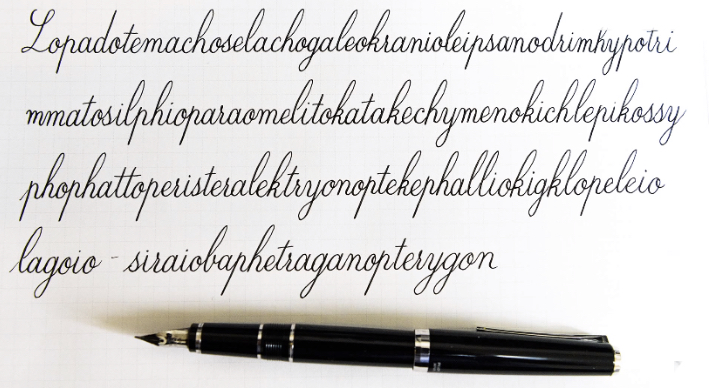 Lopadotemachoselachogaleokranioleipsanodrimhypotri
mmatosilphioparaomelitokatakechymenokichlepikossy
phophattoperisteralektryonoptekephalliokigklopeleio
lagoio-siraiobaphetraganopterygon